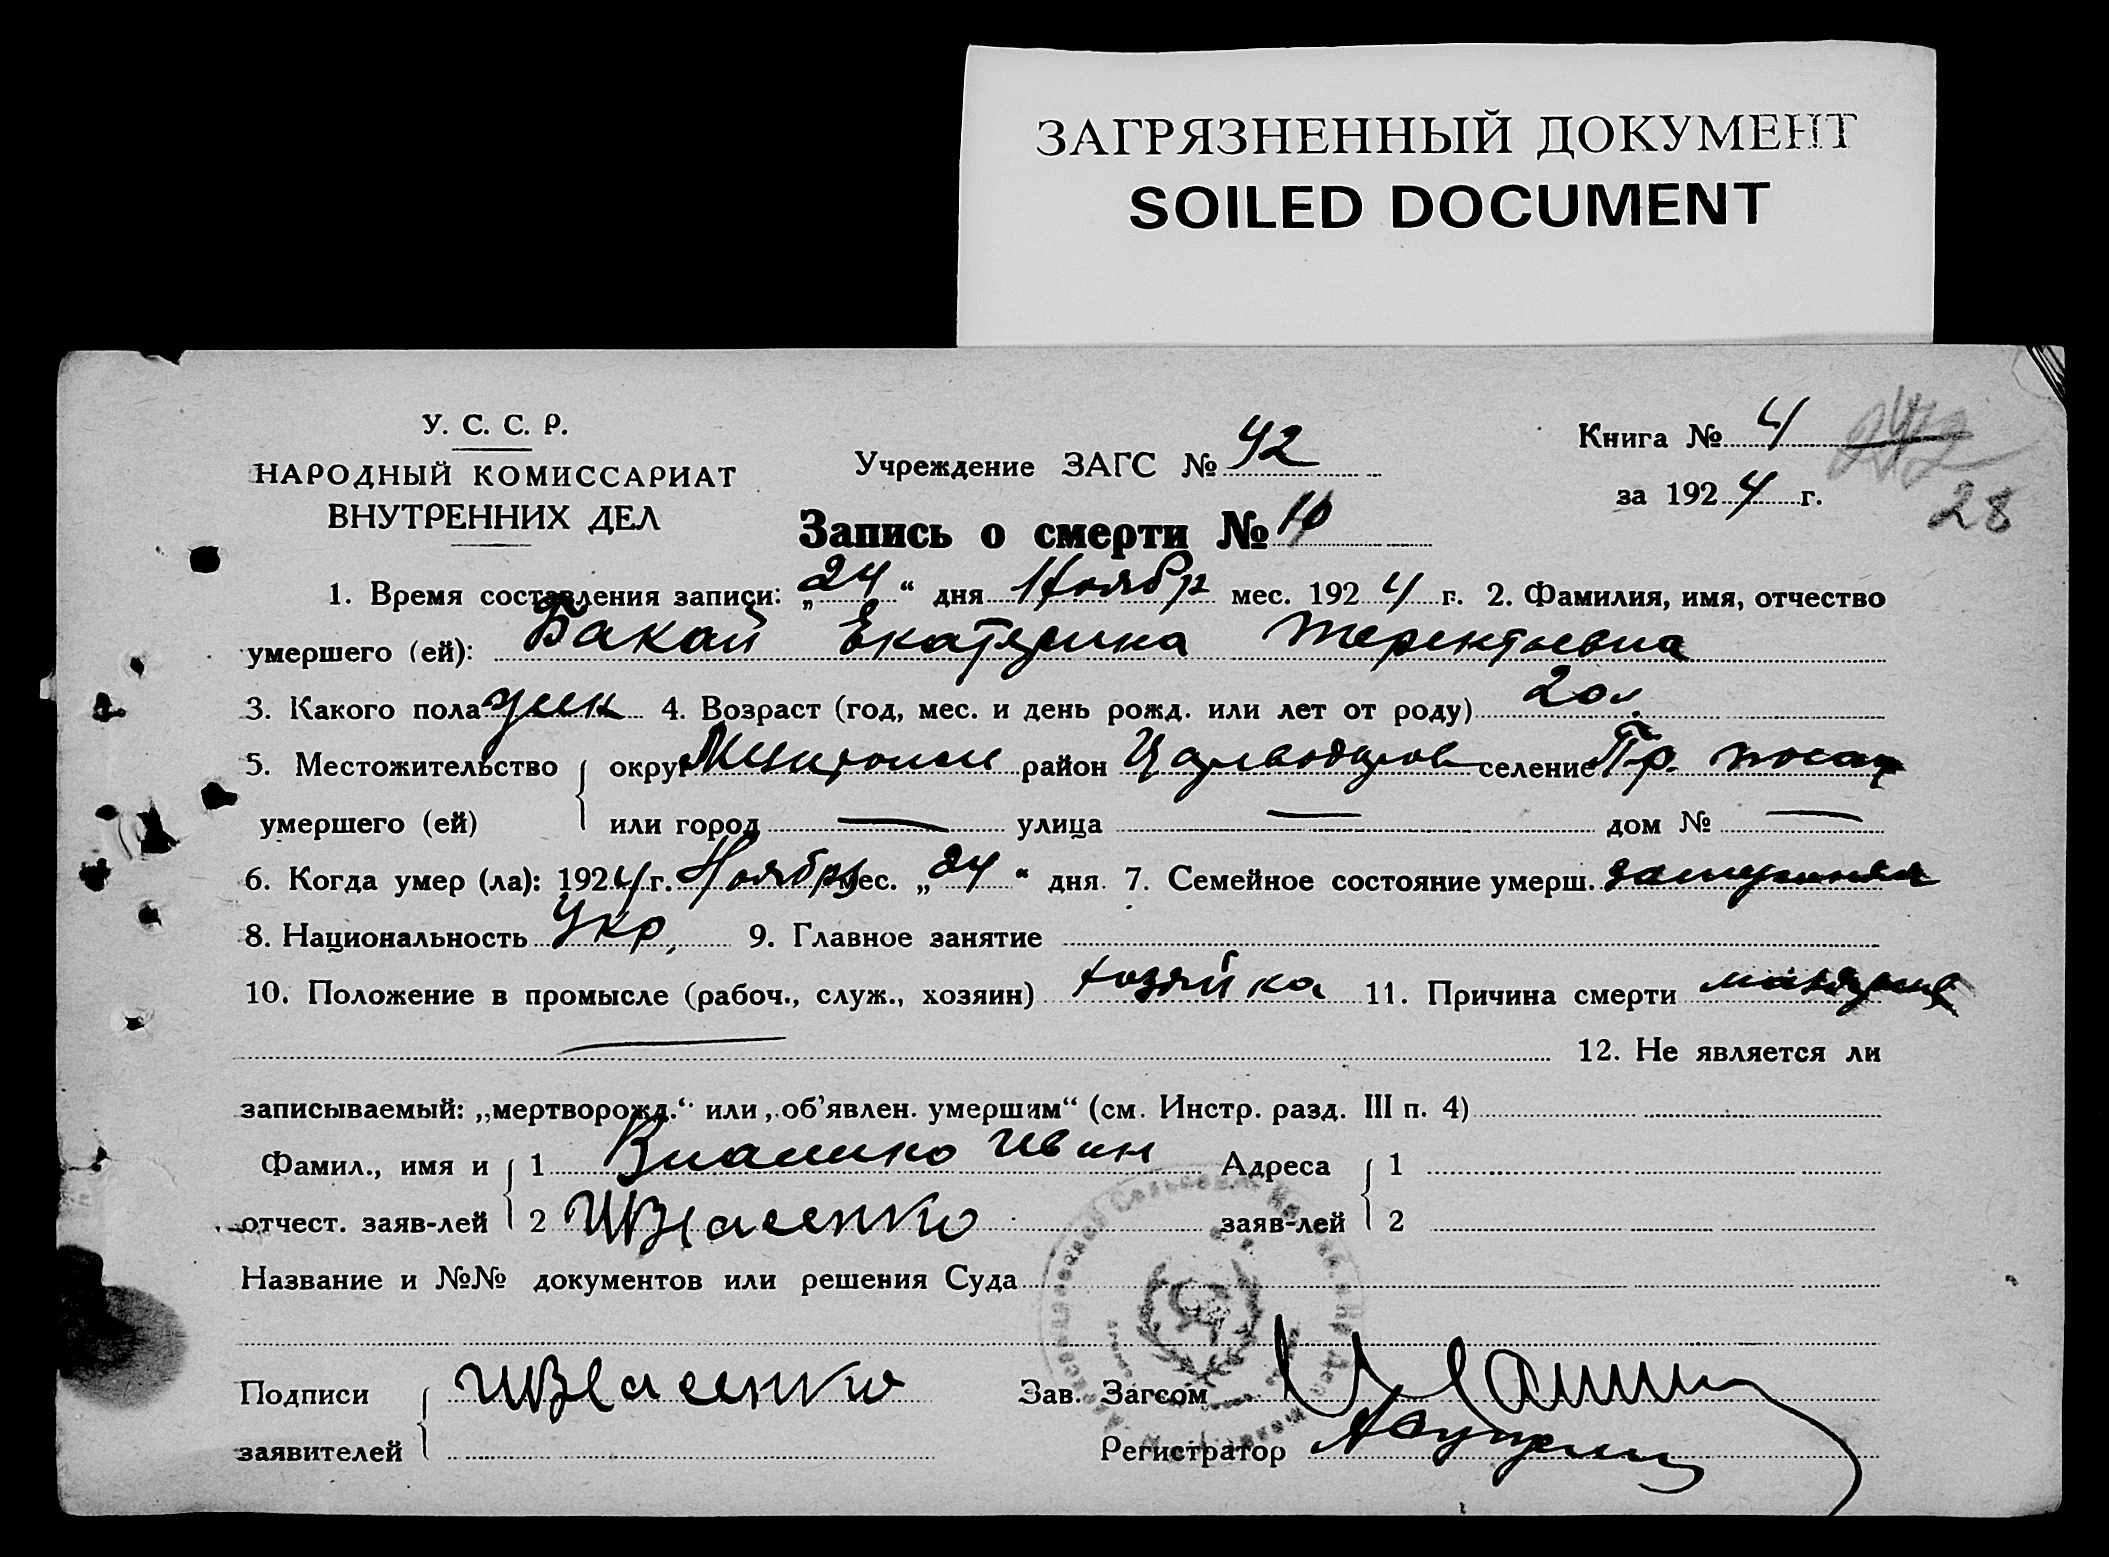 ЗАГРЯЗНЕННЫЙ ДОКУМЕНТ
SOILED DOCUMENT
У. С. С. Р.
НАРОДНЫЙ КОМИССАРИАТ
ВНУТРЕННИХ ДЕЛ
Учреждение ЗАГС № 42
Книга № 4
за 1924 г.
28
Запись о смерти № 10
1. Время составления записи: „24“ дня Ноябр мес. 1924 г. 2. Фамилия, имя, отчество
умершего (ей): Бакай Екатерина Терентьевна
3. Какого пола жен 4. Возраст (год, мес. и день рожд. или лет от роду) 20 л.
5. Местожительство округ район селение Пр. посад
умершего (ей) или город — улица — дом № —
6. Когда умер (ла): 1924 г. Ноября мес. „24“ дня. 7. Семейное состояние умерш. замужняя
8. Национальность Укр. 9. Главное занятие
10. Положение в промысле (рабоч., служ., хозяин) хозяйка 11. Причина смерти малярия
12. Не является ли
записываемый: „мертворожд.“ или „об’явлен. умершим“ (см. Инстр. разд. III п. 4)
Фамил., имя и 1 Власенко Иван Адреса 1
отчест. заяв-лей 2 ИВласенко заяв-лей 2
Название и №№ документов или решения Суда
Подписи ИВласенко Зав. Загсом
заявителей Регистратор